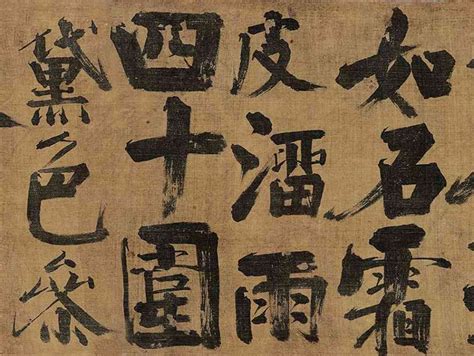 如石霜
皮溜雨
四十圍
黛色參